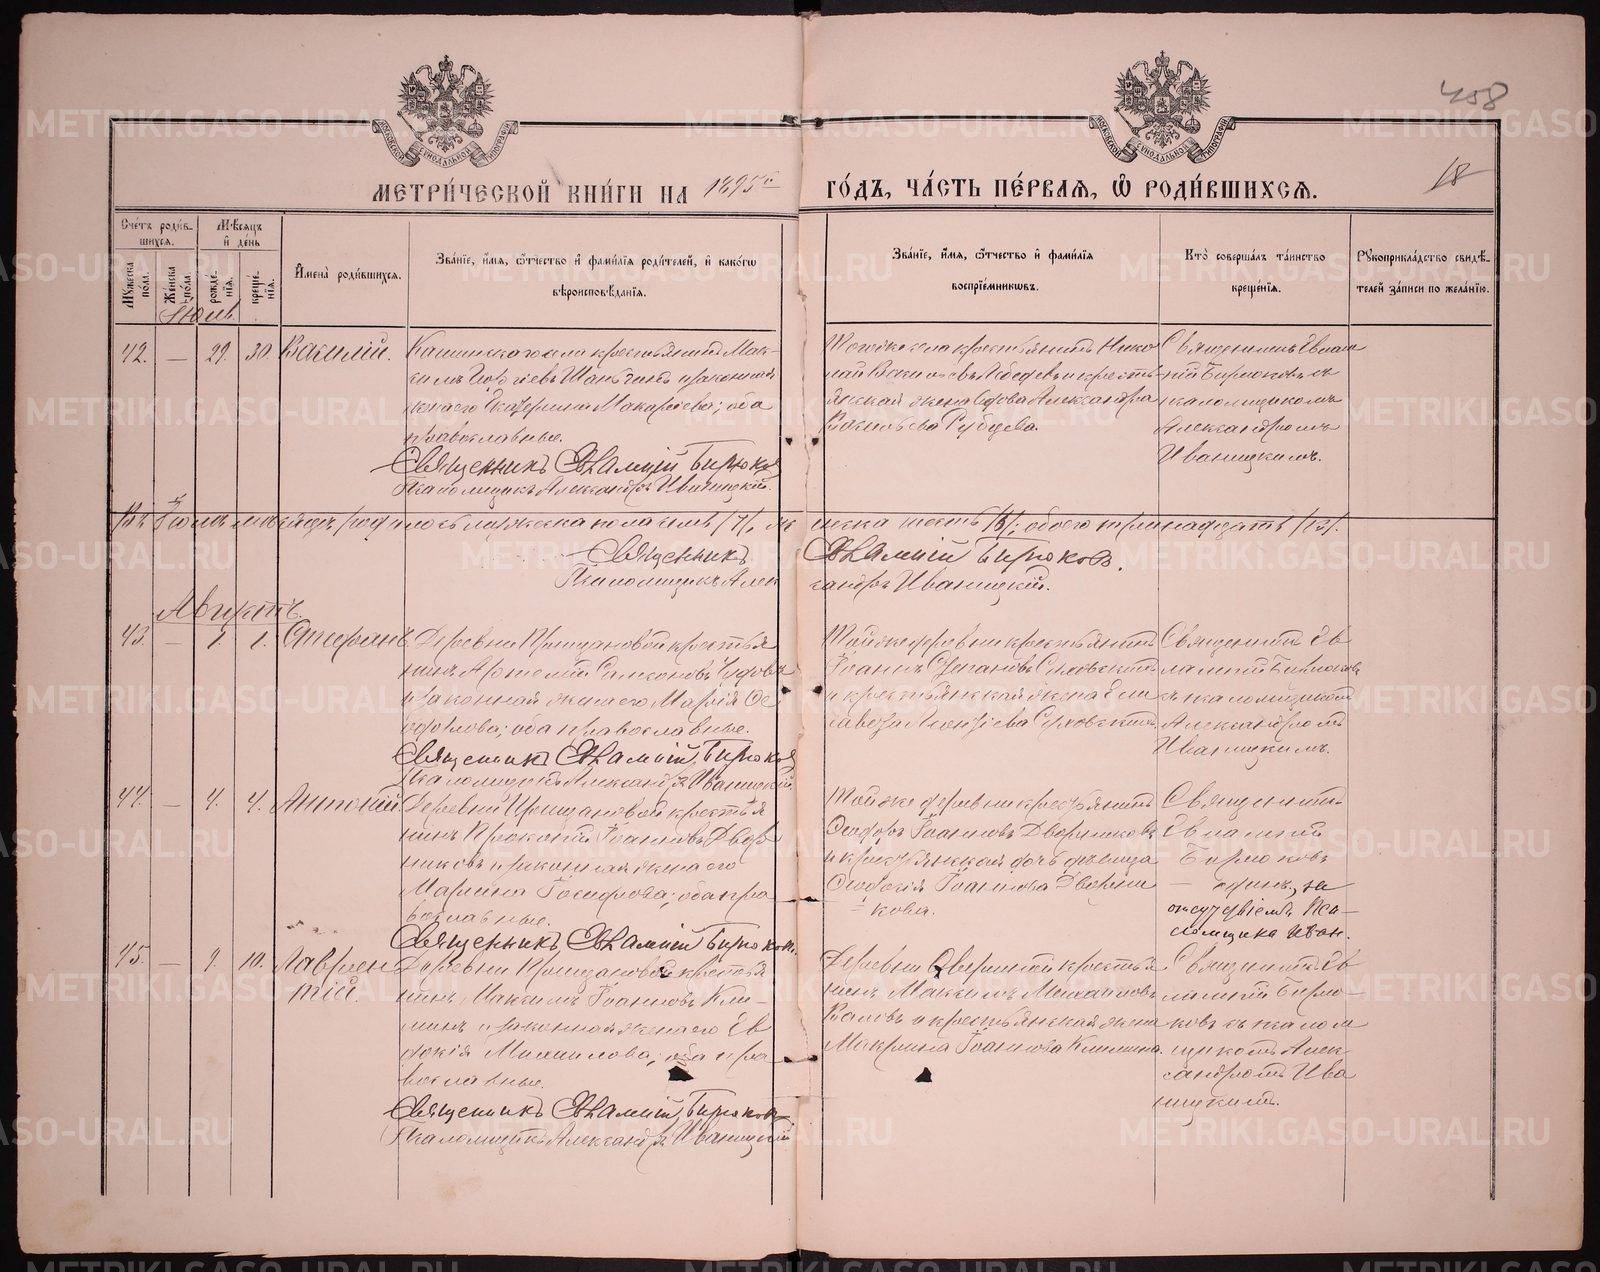 458
18
МОСКОВСКОЙ СУНОДАЛЬНОЙ ТИПОГРАФІИ
МОСКОВСКОЙ СУНОДАЛЬНОЙ ТИПОГРАФІИ
МЕТРИ́ЧЕСКОЙ КНИ́ГИ НА 1895й ГО́ДЪ, ЧА́СТЬ ПЕ́РВАѦ, Ѡ҆ РОДИ́ВШИХСѦ.
Сче́тъ роди́в-
шихсѧ.
Мѣ́сѧцъ
и҆ де́нь
Мꙋ́жеска по́ла.
Же́нска по́ла.
рожде́-
нїѧ.
креще́-
нїѧ.
И҆мена̀ роди́вшихсѧ.
Зва́нїе, и҆́мѧ, ѻ҆́тчество и҆ фами́лїѧ роди́телей, и҆ како́гѡ
вѣроисповѣ́данїѧ.
Зва́нїе, и҆́мѧ, ѻ҆́тчество и҆ фами́лїѧ
воспрїе́мникѡвъ.
Кто̀ соверша́лъ та́инство
креще́нїѧ.
Рꙋкоприкла́дство свидѣ́-
телей за́писи по жела́нїю.
Іюль
42. — 29. 30. Василій.
крестьянинъ Мак-
симъ и законная
жена его Екатерина Макарьева; оба
православные.
Священникъ Евлампій Бирюковъ
Псаломщикъ Александръ Иваницкій.
Тогоже села крестьянинъ Нико-
лай Васильевъ Лебедевъ и кресть-
янская жена вдова Александра
Васильева Рубцева.
Священникъ Евлам-
пій Бирюковъ съ
псаломщикомъ
Александромъ
Иваницкимъ.
Въ Іюлѣ мѣсяцѣ родилось мужеска пола семь /7/, женска шесть /6/; обоего тринадцать /13/.
Священникъ Евлампій Бирюковъ.
Псаломщикъ Александръ Иваницкій.
Августъ.
43. — 1. 1. Стефанъ
Деревни крестья-
нинъ Артемій Самсоновъ
и законная жена его Марія Ѳе-
одорова; оба православные.
Священникъ Евлампій Бирюковъ
Псаломщикъ Александръ Иваницкій
Той же деревни крестьянинъ
Іоаннъ Степановъ
и крестьянская жена Ели-
савета
Священникъ Ев-
лампій Бирюковъ
съ псаломщикомъ
Александромъ
Иваницкимъ.
44. — 4. 4. Антоній
Деревни крестья-
нинъ Прокопій Іоанновъ Двор-
никовъ и законная жена его
Марина Іосифова; оба пра-
вославные.
Священникъ Евлампій Бирюковъ.
Той же деревни крестьянинъ
Ѳеодоръ Іоанновъ Дворниковъ
и крестьянская дочь дѣвица
Ѳеодосія Іоаннова Дворни-
кова.
Священникъ
Евлампій
Бирюковъ
— одинъ, за
отсутствіемъ Пса-
ломщика Иван.
45. — 9. 10. Лаврен-
тій.
Деревни крестья-
нинъ Максимъ Іоанновъ Кли-
минъ и законная жена его Ев-
докія оба пра-
вославные.
Священникъ Евлампій Бирюковъ
Псаломщикъ Александръ Иваницкій
Деревни крестья-
нинъ Максимъ Михайловъ
и крестьянская жена
Макрина Іоаннова Климина.
Священникъ Ев-
лампій Бирю-
ковъ съ псалом-
щикомъ Алек-
сандромъ Ива-
ницкимъ.
METRIKI.GASO-URAL.RU